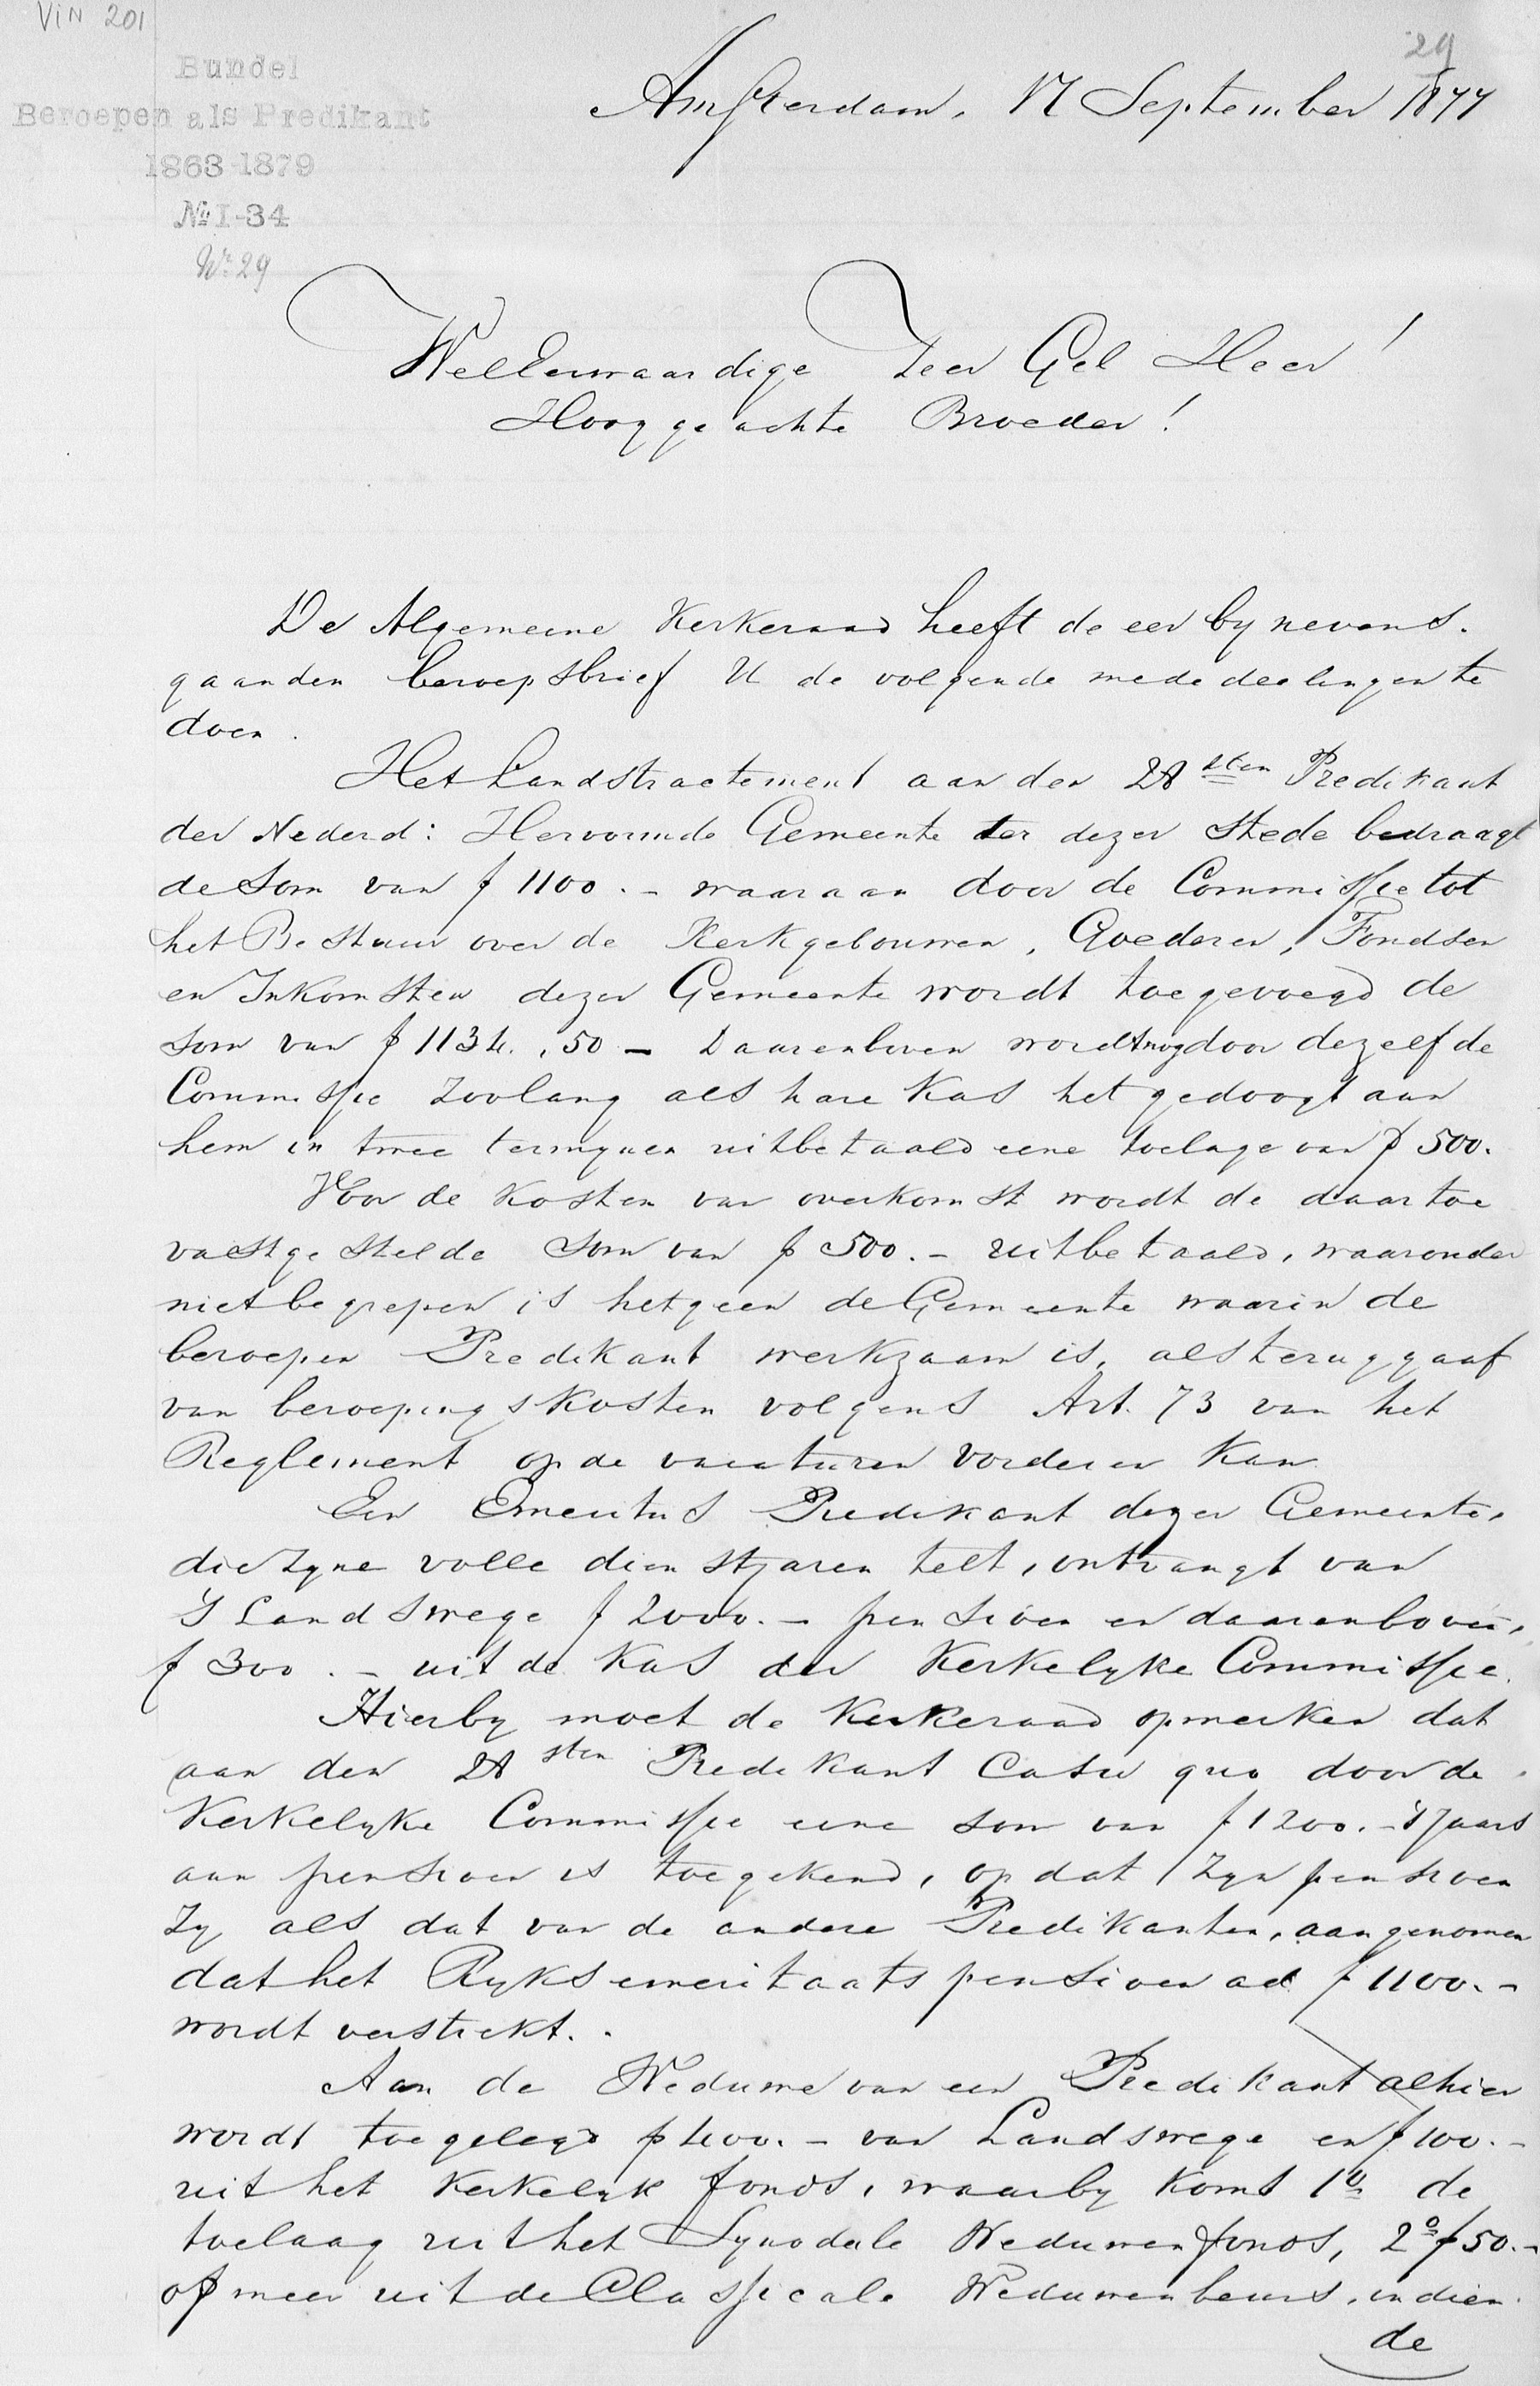 VIN 201
29
Bundel
Beroepen als Predikant
1863-1879
No I-34
Nr. 29
Amsterdam, 17 September 1877
WelEerwaardige Zeer Gel Heer!
Hooggeachte Broeder!
De Algemeene Kerkeraad heeft de eer by nevens-
gaanden beroepsbrief U de volgende mededeelingen te
doen.
Het Landstractement aan den 28sten Predikant
der Nederd: Hervormde Gemeente ter dezer stede bedraagt
de som van ƒ 1100.- waaraan door de Commissie tot
het Bestuur over de Kerkgebouwen, Goederen, Fondsen
en Inkomsten dezer Gemeente wordt toegevoegd de
som van ƒ 1134.,50 - Daarenboven wordt nog door dezelfde
Commissie zoolang als hare Kas het gedoogt aan
hem in twee termynen uitbetaald eene toelage van ƒ 500.
Voor de Kosten van overkomst wordt de daartoe
vastgestelde som van ƒ 500.- uitbetaald, waaronder
niet begrepen is hetgeen de Gemeente waarin de
beroepen Predikant werkzaam is, als teruggaaf
van beroepingskosten volgens Art. 73 van het
Reglement op de vacaturen vorderen kan
Een Emeritus Predikant dezer Gemeente,
die zyne volle dienstjaren telt, ontvangt van
's Landswege ƒ 2000.- pensioen en daarenboven,
ƒ 300.- uit de Kas der Kerkelyke Commissie.
Hierby moet de Kerkeraad opmerken dat
aan den 28sten Predikant casu quo door de
Kerkelyke Commissie eene som van ƒ 1200.- 's jaars
aan pensioen is toegekend, opdat zyn pensioen
zy als dat van de andere Predikanten, aangenomen
dat het Ryksemeritaatspensioen ad ƒ 1100.-
wordt verstrekt.
Aan de Weduwe van een Predikant alhier
wordt toegelegd ƒ 400.- van Landswege en ƒ 100.-
uit het Kerkelyk fonds, waarby komt 1o de
toelaag uit het Synodale Weduwenfonds, 2o ƒ 50.-
of meer uit de Classicale Weduwenbeurs, indien
de